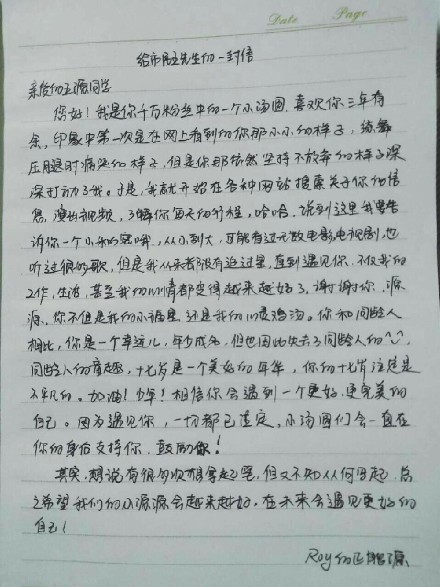 Date Page
给市民王先生的一封信
亲爱的王源同学
您好！我是你千万粉丝中的一个小汤圆，喜欢你三年有
余，印象中第一次是在网上看到的你那小小的样子，练舞
压腿时痛哭的样子，但是你那依然坚持不放弃的样子深
深打动了我。于是，我就开始在各种网站搜索关于你的信
息，演出视频，了解你每天的行程。哈哈，说到这里我要告
诉你一个小小的秘密哦，从小到大，可能看过无数电影电视剧，也
听过很多歌，但是我从来都没有追过星，直到遇见你，不仅我的
工作，生活，甚至我的心情都变得越来越好了，谢谢你，源
源，你不但是我的小糖果，还是我的心灵鸡汤。你和同龄人
相比，你是一个幸运儿，年少成名，但也因此失去了同龄人的
同龄人的童趣，十七岁是一个美好的年华，你的十七岁注定是
不平凡的。加油！少年！相信你会遇到一个更好，更完美的
自己。因为遇见你，一切都已注定，小汤圆们会一直在
你的身后支持你，鼓励你！
其实，想说有很多次想拿起笔，但又不知从何写起，总
之希望我们的小源源会越来越好，在未来会遇见更好的
自己！
Roy的